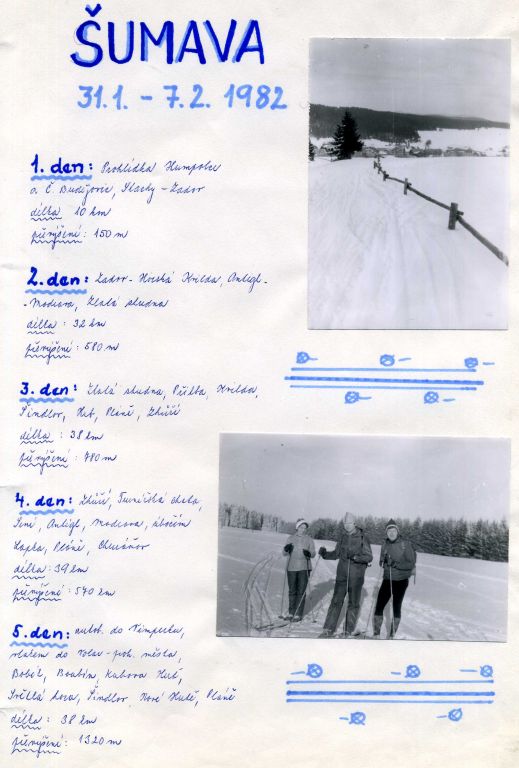 ŠUMAVA
31.1. - 7.2. 1982
1. den: Prohlídka Humpolce
a Č. Budějovic, Stachy - Zador
délka 10 km
převýšení: 150 m
2. den: Zador - Horská Kvilda, Antigl -
- Modrava, Zlatá studna
délka : 32 km
převýšení : 580 m
3. den: Zlatá studna, Kvilda,
Šindlov, Huť, Pláně, Zhůří
délka : 38 km
převýšení : 780 m
4. den: Zhůří, Turnéřská chata,
Antigl, Modrava,
Pláně, Churáňov
délka : 39 km
převýšení : 570 km
5. den: autob. do Vimperku,
vlakem do Volar - poh. města,
Bobík, Boubín, Kubova Huť,
Světlá hora, Šindlov, Nové Hutě, Pláně
délka : 38 km
převýšení : 1320 m